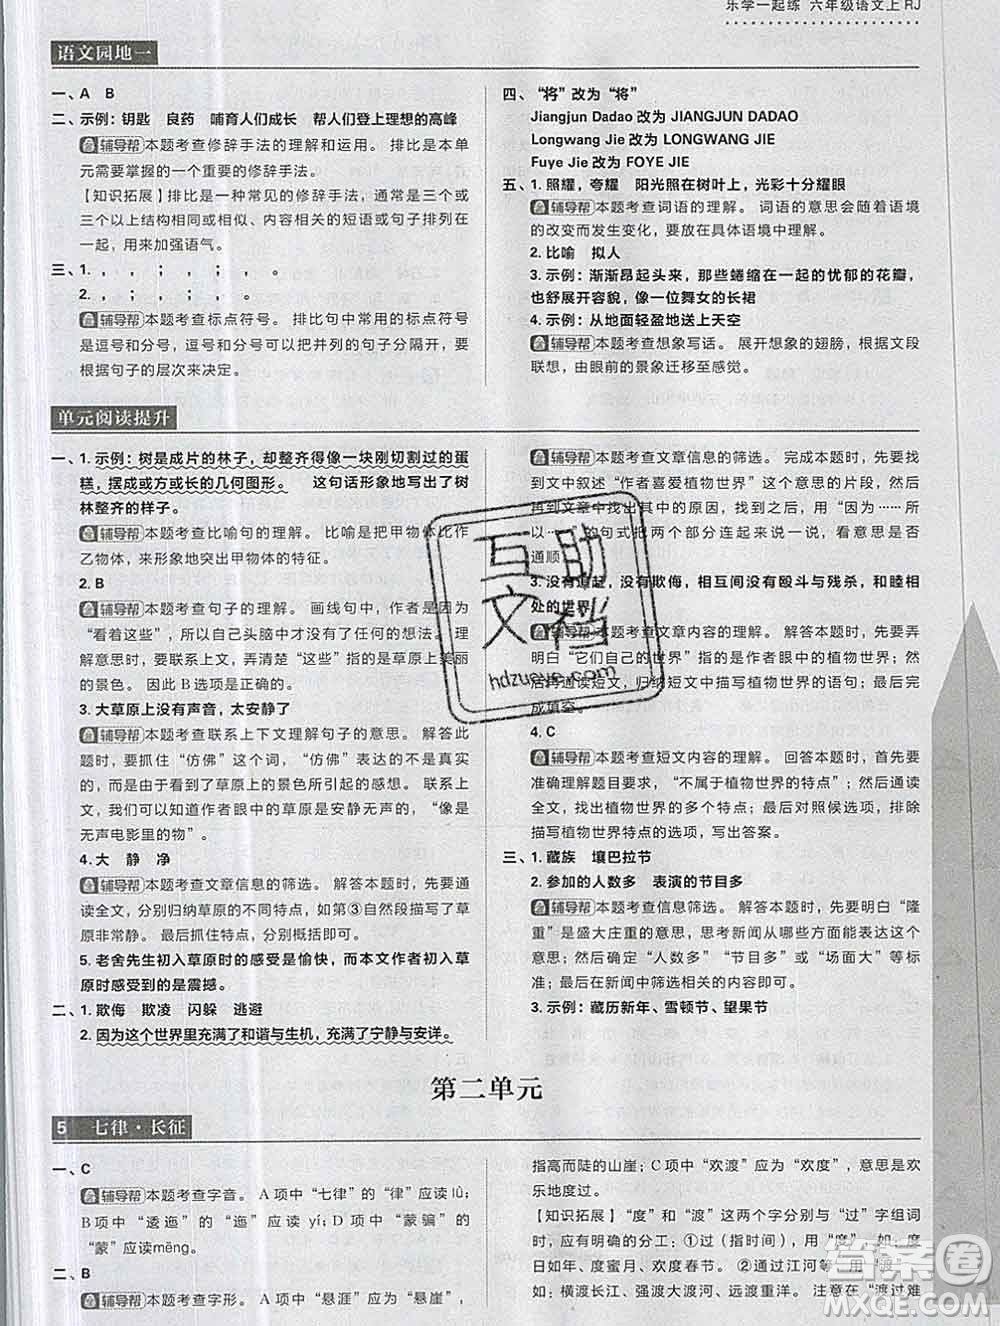 乐学一起练 六年级语文上 RJ
语文园地一
一、A B
二、示例：钥匙 良药 哺育人们成长 帮人们登上理想的高峰
辅导帮 本题考查修辞手法的理解和运用。排比是本单
元需要掌握的一个重要的修辞手法。
【知识拓展】排比是一种常见的修辞手法，通常是三个或
三个以上结构相同或相似、内容相关的短语或句子排列在
一起，用来加强语气。
三、1. ， ， ； ， ； ， 。
2. ， ； ， ； ， 。
辅导帮 本题考查标点符号。排比句中常用的标点符号
是逗号和分号，逗号和分号可以把并列的句子分隔开，要
根据句子的层次来决定。
四、“将”改为“将”
Jiangjun Dadao 改为 JIANGJUN DADAO
Longwang Jie 改为 LONGWANG JIE
Fuye Jie 改为 FOYE JIE
五、1. 照耀，夸耀 阳光照在树叶上，光彩十分耀眼
辅导帮 本题考查词语的理解。词语的意思会随着语境
的改变而发生变化，要放在具体语境中理解。
2. 比喻 拟人
3. 示例：渐渐昂起头来，那些蜷缩在一起的忧郁的花瓣，
也舒展开容貌，像一位舞女的长裙
4. 示例：从地面轻盈地送上天空
辅导帮 本题考查想象写话。展开想象的翅膀，根据文段
联想，由眼前的景象迁移至感觉。
单元阅读提升
一、1. 示例：树是成片的林子，却整齐得像一块刚切割过的蛋
糕，摆成或方或长的几何图形。 这句话形象地写出了树
林整齐的样子。
辅导帮 本题考查比喻句的理解。比喻是把甲物体比作
乙物体，来形象地突出甲物体的特征。
2. B
辅导帮 本题考查句子的理解。画线句中，作者是因为
“看着这些”，所以自己头脑中才没有了任何的想法。理
解时，要联系上文，弄清楚“这些”指的是草原上美丽
的景色。因此B选项是正确的。
3. 大草原上没有声音，太安静了
辅导帮 本题考查联系上下文理解句子的意思。解答此
题时，要抓住“仿佛”这个词，“仿佛”表达的不是真实
的，而是由于看到了草原上的景色所引起的感想。联系上
文，我们可以知道作者眼中的草原是安静无声的，“像是
无声电影里的物”。
4. 大 静 净
辅导帮 本题考查文章信息的筛选。解答本题时，先要通
读全文，分别归纳草原的不同特点，如第③自然段描写了草
原非常静。最后抓住特点，分别概括即可。
5. 老舍先生初入草原时的感受是愉快，而本文作者初入草
原时感受到的是震撼。
二、1. 欺侮 欺凌 闪躲 逃避
2. 因为这个世界里充满了和谐与生机，充满了宁静与安详。
辅导帮 本题考查文章信息的筛选。完成本题时，先要找
到文中叙述“作者喜爱植物世界”这个意思的片段，然后
再到文章中查找喜欢的原因，找到后，用“因为……所
以……”的句式把两个部分连起来说一说，看意思是否
通顺。
3. 没有追赶，没有欺侮，相互间没有殴斗与残杀，和睦相
处的世界。
辅导帮 本题考查文章内容的理解。解答本题时，先要弄
明白“它们自己的世界”指的是作者眼中的植物世界，然
后再通读短文，归纳短文中描写植物世界的语句，最后完
成填空。
4. C
辅导帮 本题考查短文内容的理解。回答本题时，首先要
准确理解题目要求，“不属于植物世界的特点”；然后通读
全文，找出植物世界的多个特点；最后对照候选项，排除
描写植物世界特点的选项，写出答案。
三、1. 藏族 壤巴拉节
2. 参加的人数多 表演的节目多
辅导帮 本题考查信息筛选。解答本题时，要先明白“隆
重”是盛大庄重的意思，思考新闻从哪些方面描写了隆重；
然后确定“人数多”“节目多”或“场面大”等标准；
最后在新闻中筛选符合标准的内容即可。
3. 示例：藏历新年、雪顿节、望果节
第二单元
5 七律·长征
一、C
辅导帮 本题考查字音。A 项中“七律”的“律”应读lǜ；
B项中“逶迤”的“迤”应读 yí；D 项中“蒙骗”的
“蒙”应读mēng。
二、B
辅导帮 本题考查字形。A 项中“悬涯”应为“悬崖”，
指高而陡的山崖；C项中“欢渡”应为“欢度”，意思是欢
乐地度过。
【知识拓展】“度”和“渡”这两个字分别与“过”字组词
时，应有明确的分工：①过（指时间），用“度”，如：度
日如年、度蜜月、欢度春节。②通过江河等，用“渡”，
如：横渡长江、强渡大渡河、远渡重洋。注意在“渡过难
互助
文档
hdzuoye.com
答案圈
MXQE.COM